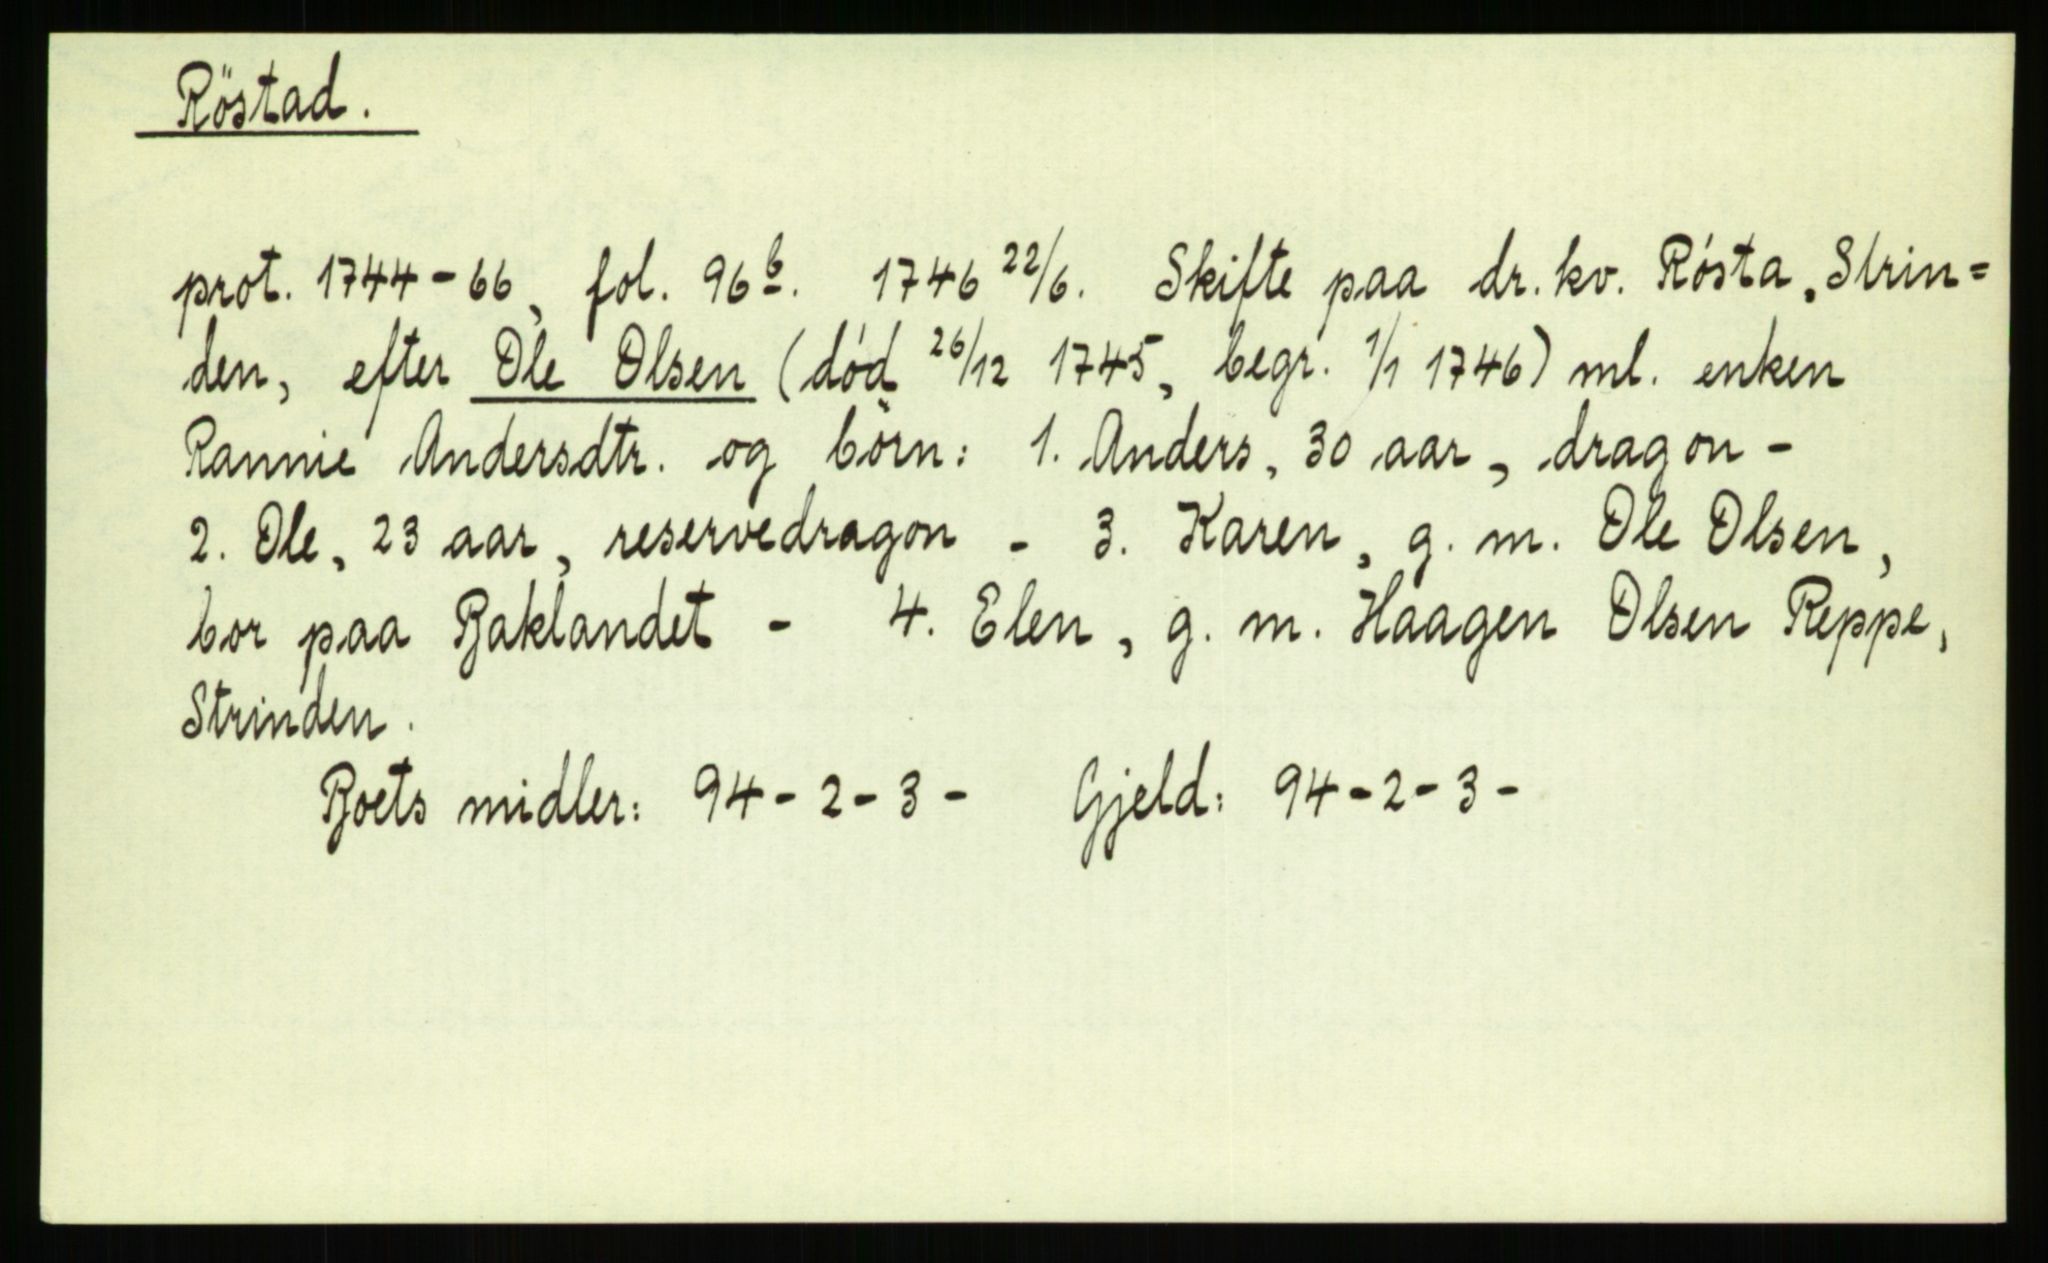 Röstad.
prot. 1744-66, fol. 96 b. 1746 22/6. Skifte paa dr. kv. Rósta, Strin=
den, efter Ole Olsen (død 26/12 1745, begr. 1/1 1746) ml. enken
Rannie Andersdtr. og börn: 1. Anders, 30 aar, dragon -
2. Ole, 23 aar, reservedragon - 3. Karen, g. m. Ole Olsen,
bor paa Baklandet - 4. Elen, g. m. Haagen Olsen Reppe,
Strinden.
Boets midler: 94-2-3- Gjeld: 94-2-3-